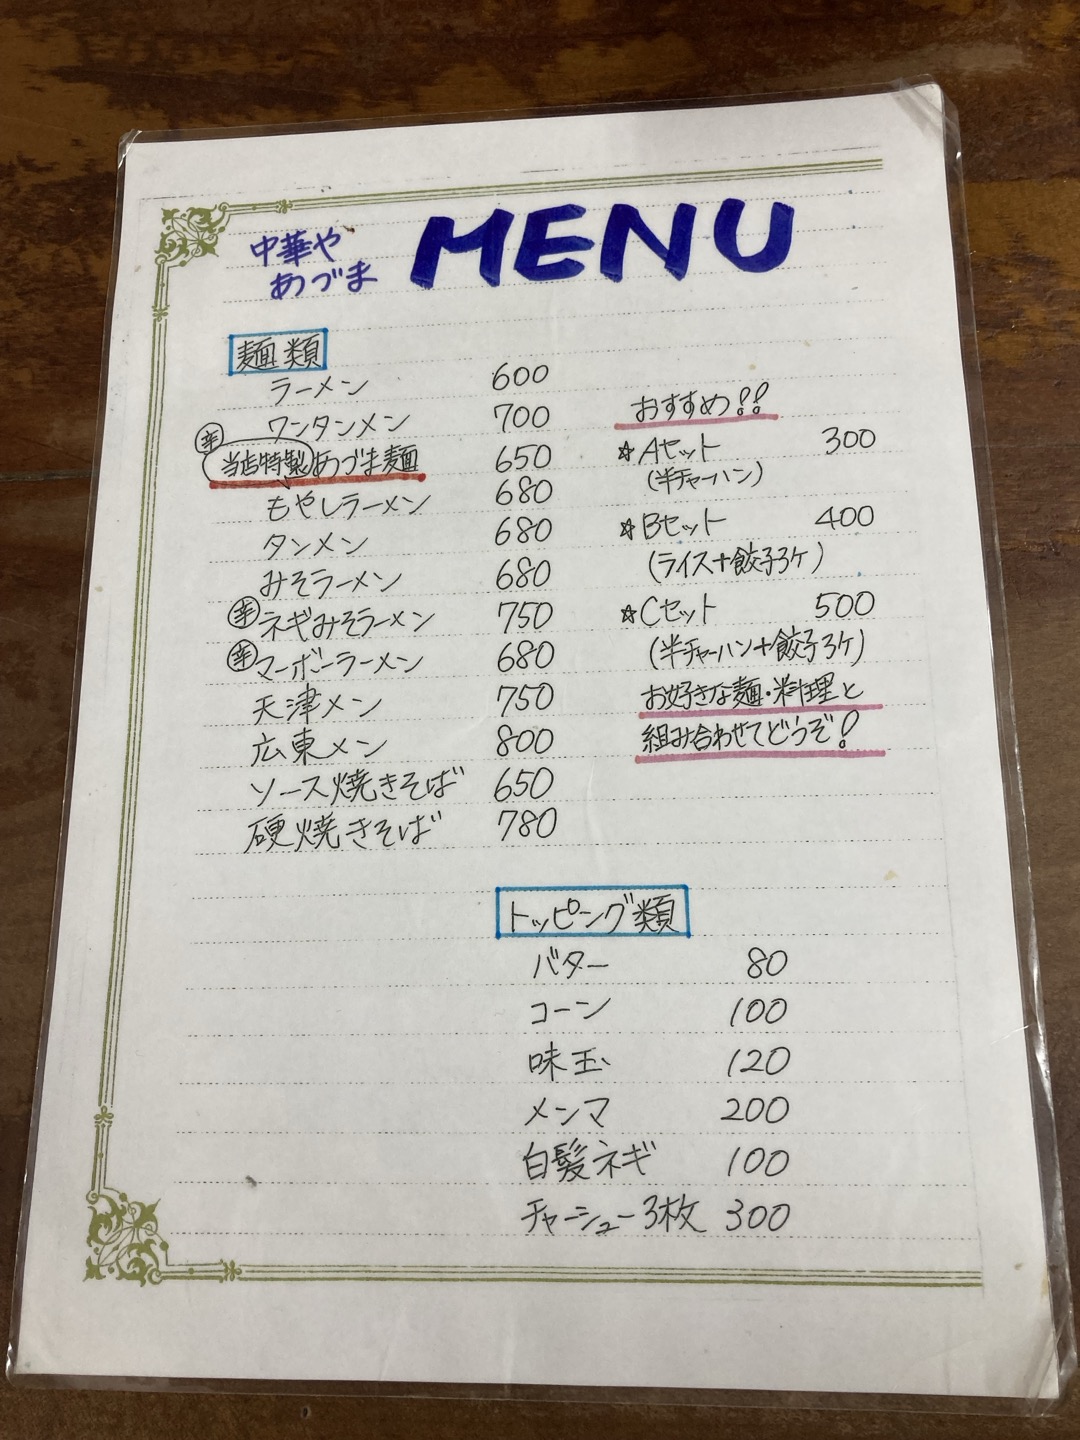 中華や
あづま
MENU
麺類
ラーメン 600
ワンタンメン 700
辛 当店特製 あづま麺 650
もやしラーメン 680
タンメン 680
みそラーメン 680
辛 ネギみそラーメン 750
辛 マーボーラーメン 680
天津メン 750
広東メン 800
ソース焼きそば 650
硬焼きそば 780
おすすめ!!
☆Aセット 300
(半チャーハン)
☆Bセット 400
(ライス+餃子3ケ)
☆Cセット 500
(半チャーハン+餃子3ケ)
お好きな麺・料理と
組み合わせてどうぞ!
トッピング類
バター 80
コーン 100
味玉 120
メンマ 200
白髪ネギ 100
チャーシュー3枚 300